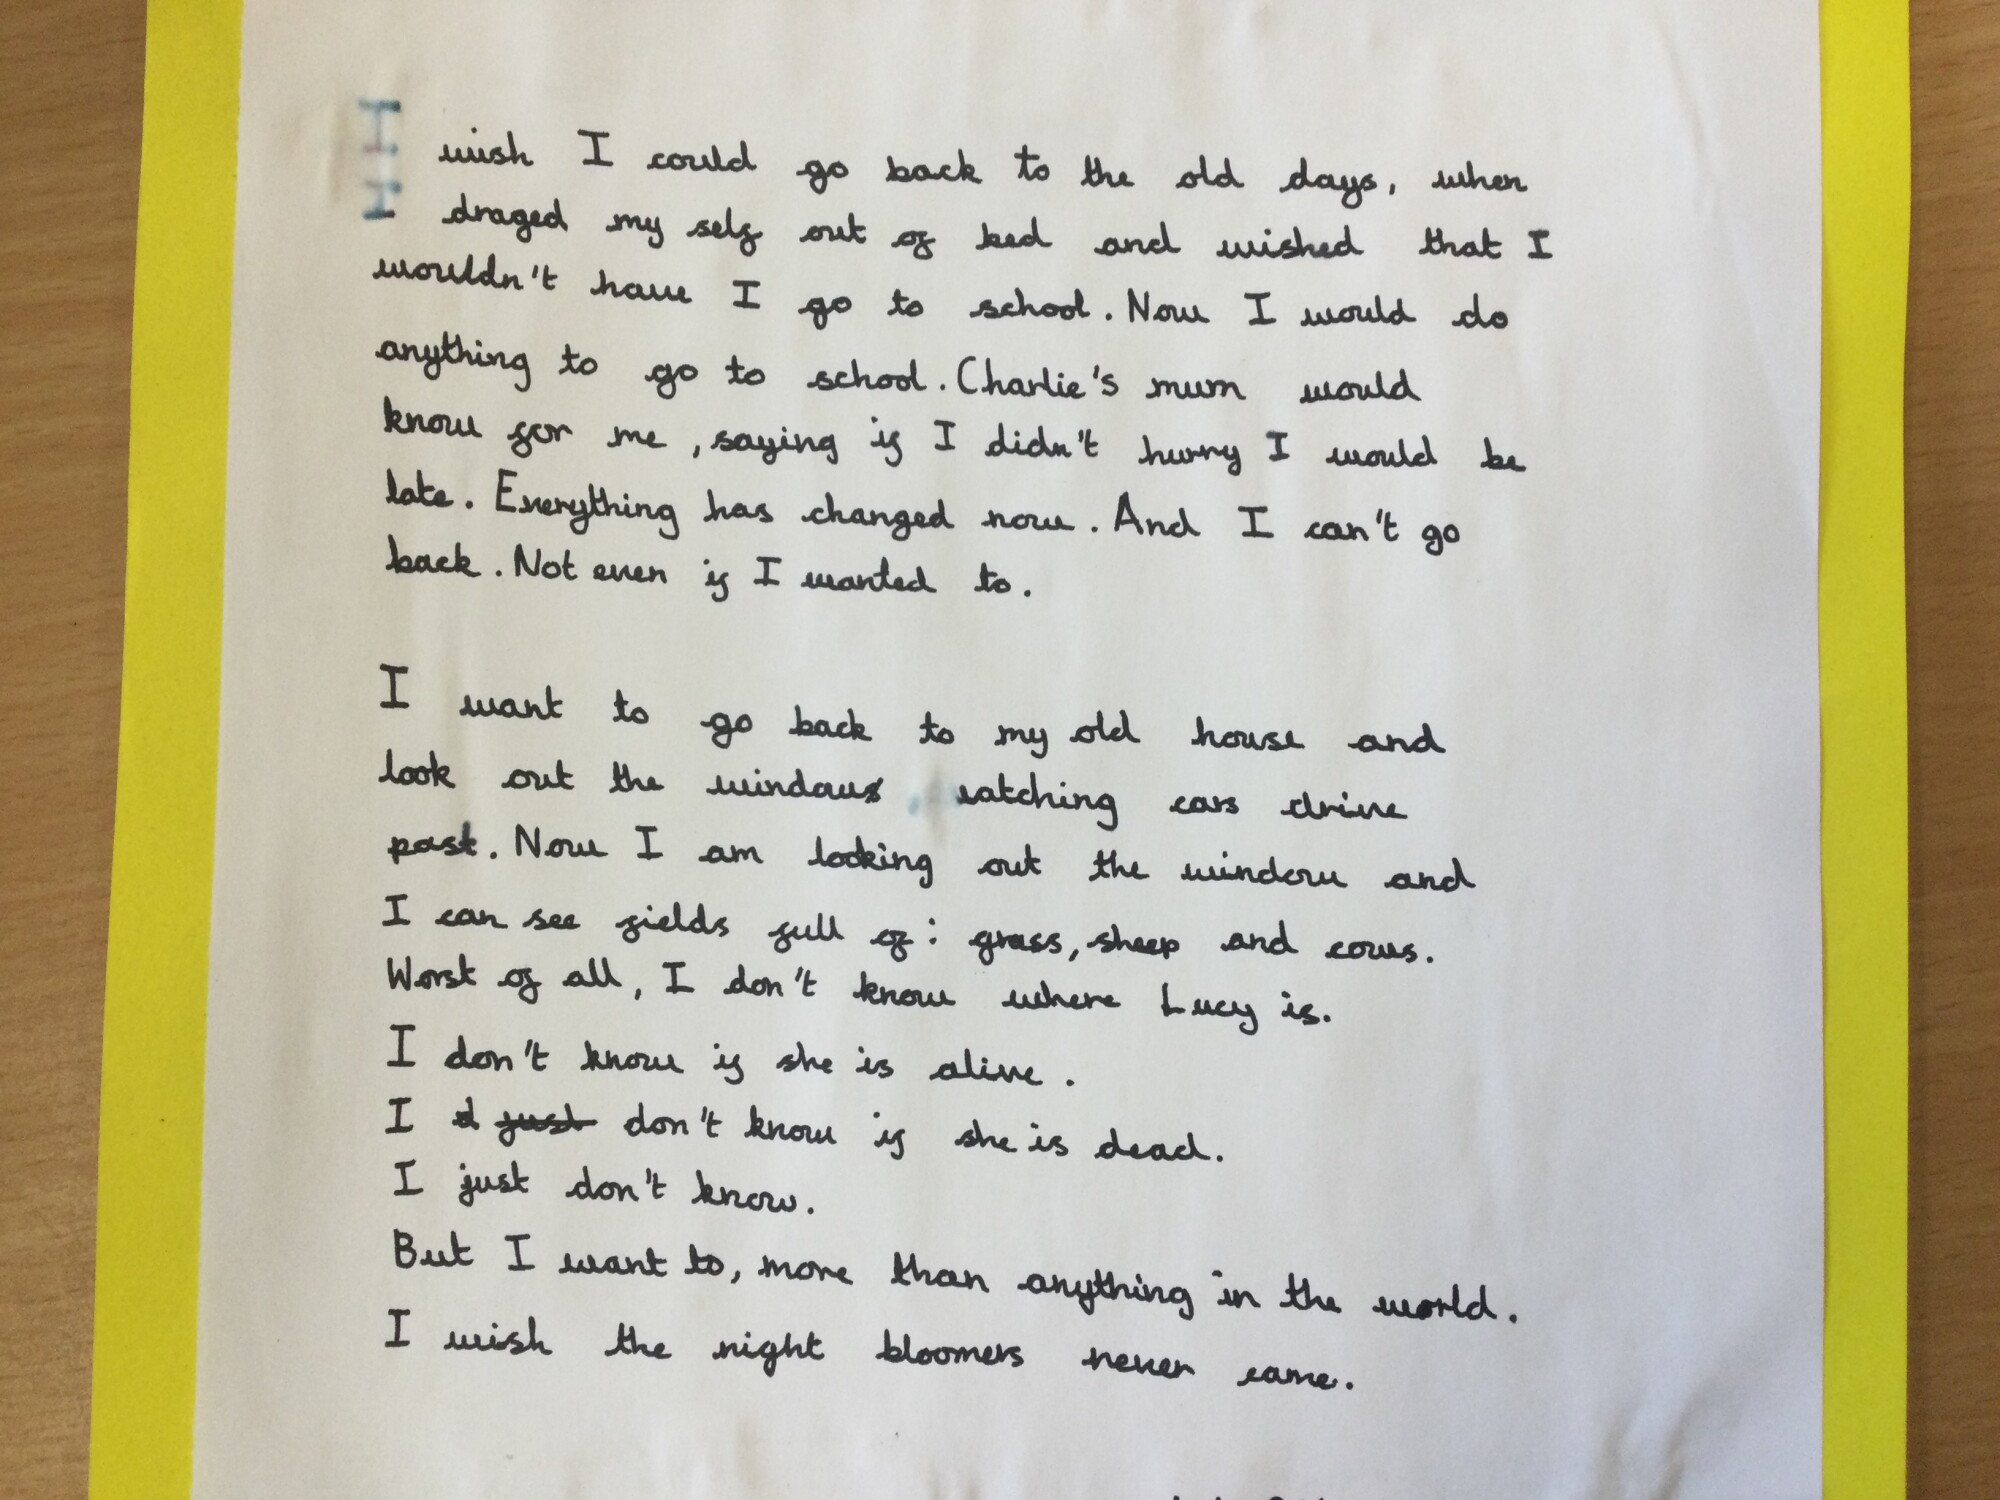 I wish I could go back to the old days, when
I draged my self out of bed and wished that I
wouldn't have I go to school. Now I would do
anything to go to school. Charlie's mum would
know for me, saying if I didn't hurry I would be
late. Everything has changed now. And I can't go
back. Not even if I wanted to.
I want to go back to my old house and
look out the windows watching cars drive
past. Now I am looking out the window and
I can see fields full of: grass, sheep and cows.
Worst of all, I don't know where Lucy is.
I don't know if she is alive.
I d just don't know if she is dead.
I just don't know.
But I want to, more than anything in the world.
I wish the night bloomers never came.